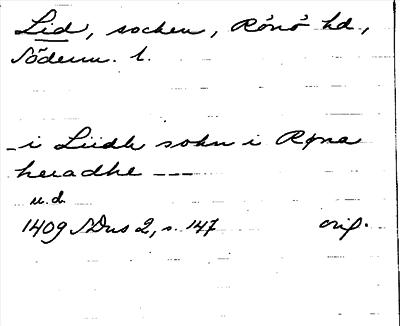 Lid, socken, Rönö hd,
Söderm. l.
- i Liidh sokn i Røna
heradhe ---
u.d.
1409 SDns 2, s. 147 orig.